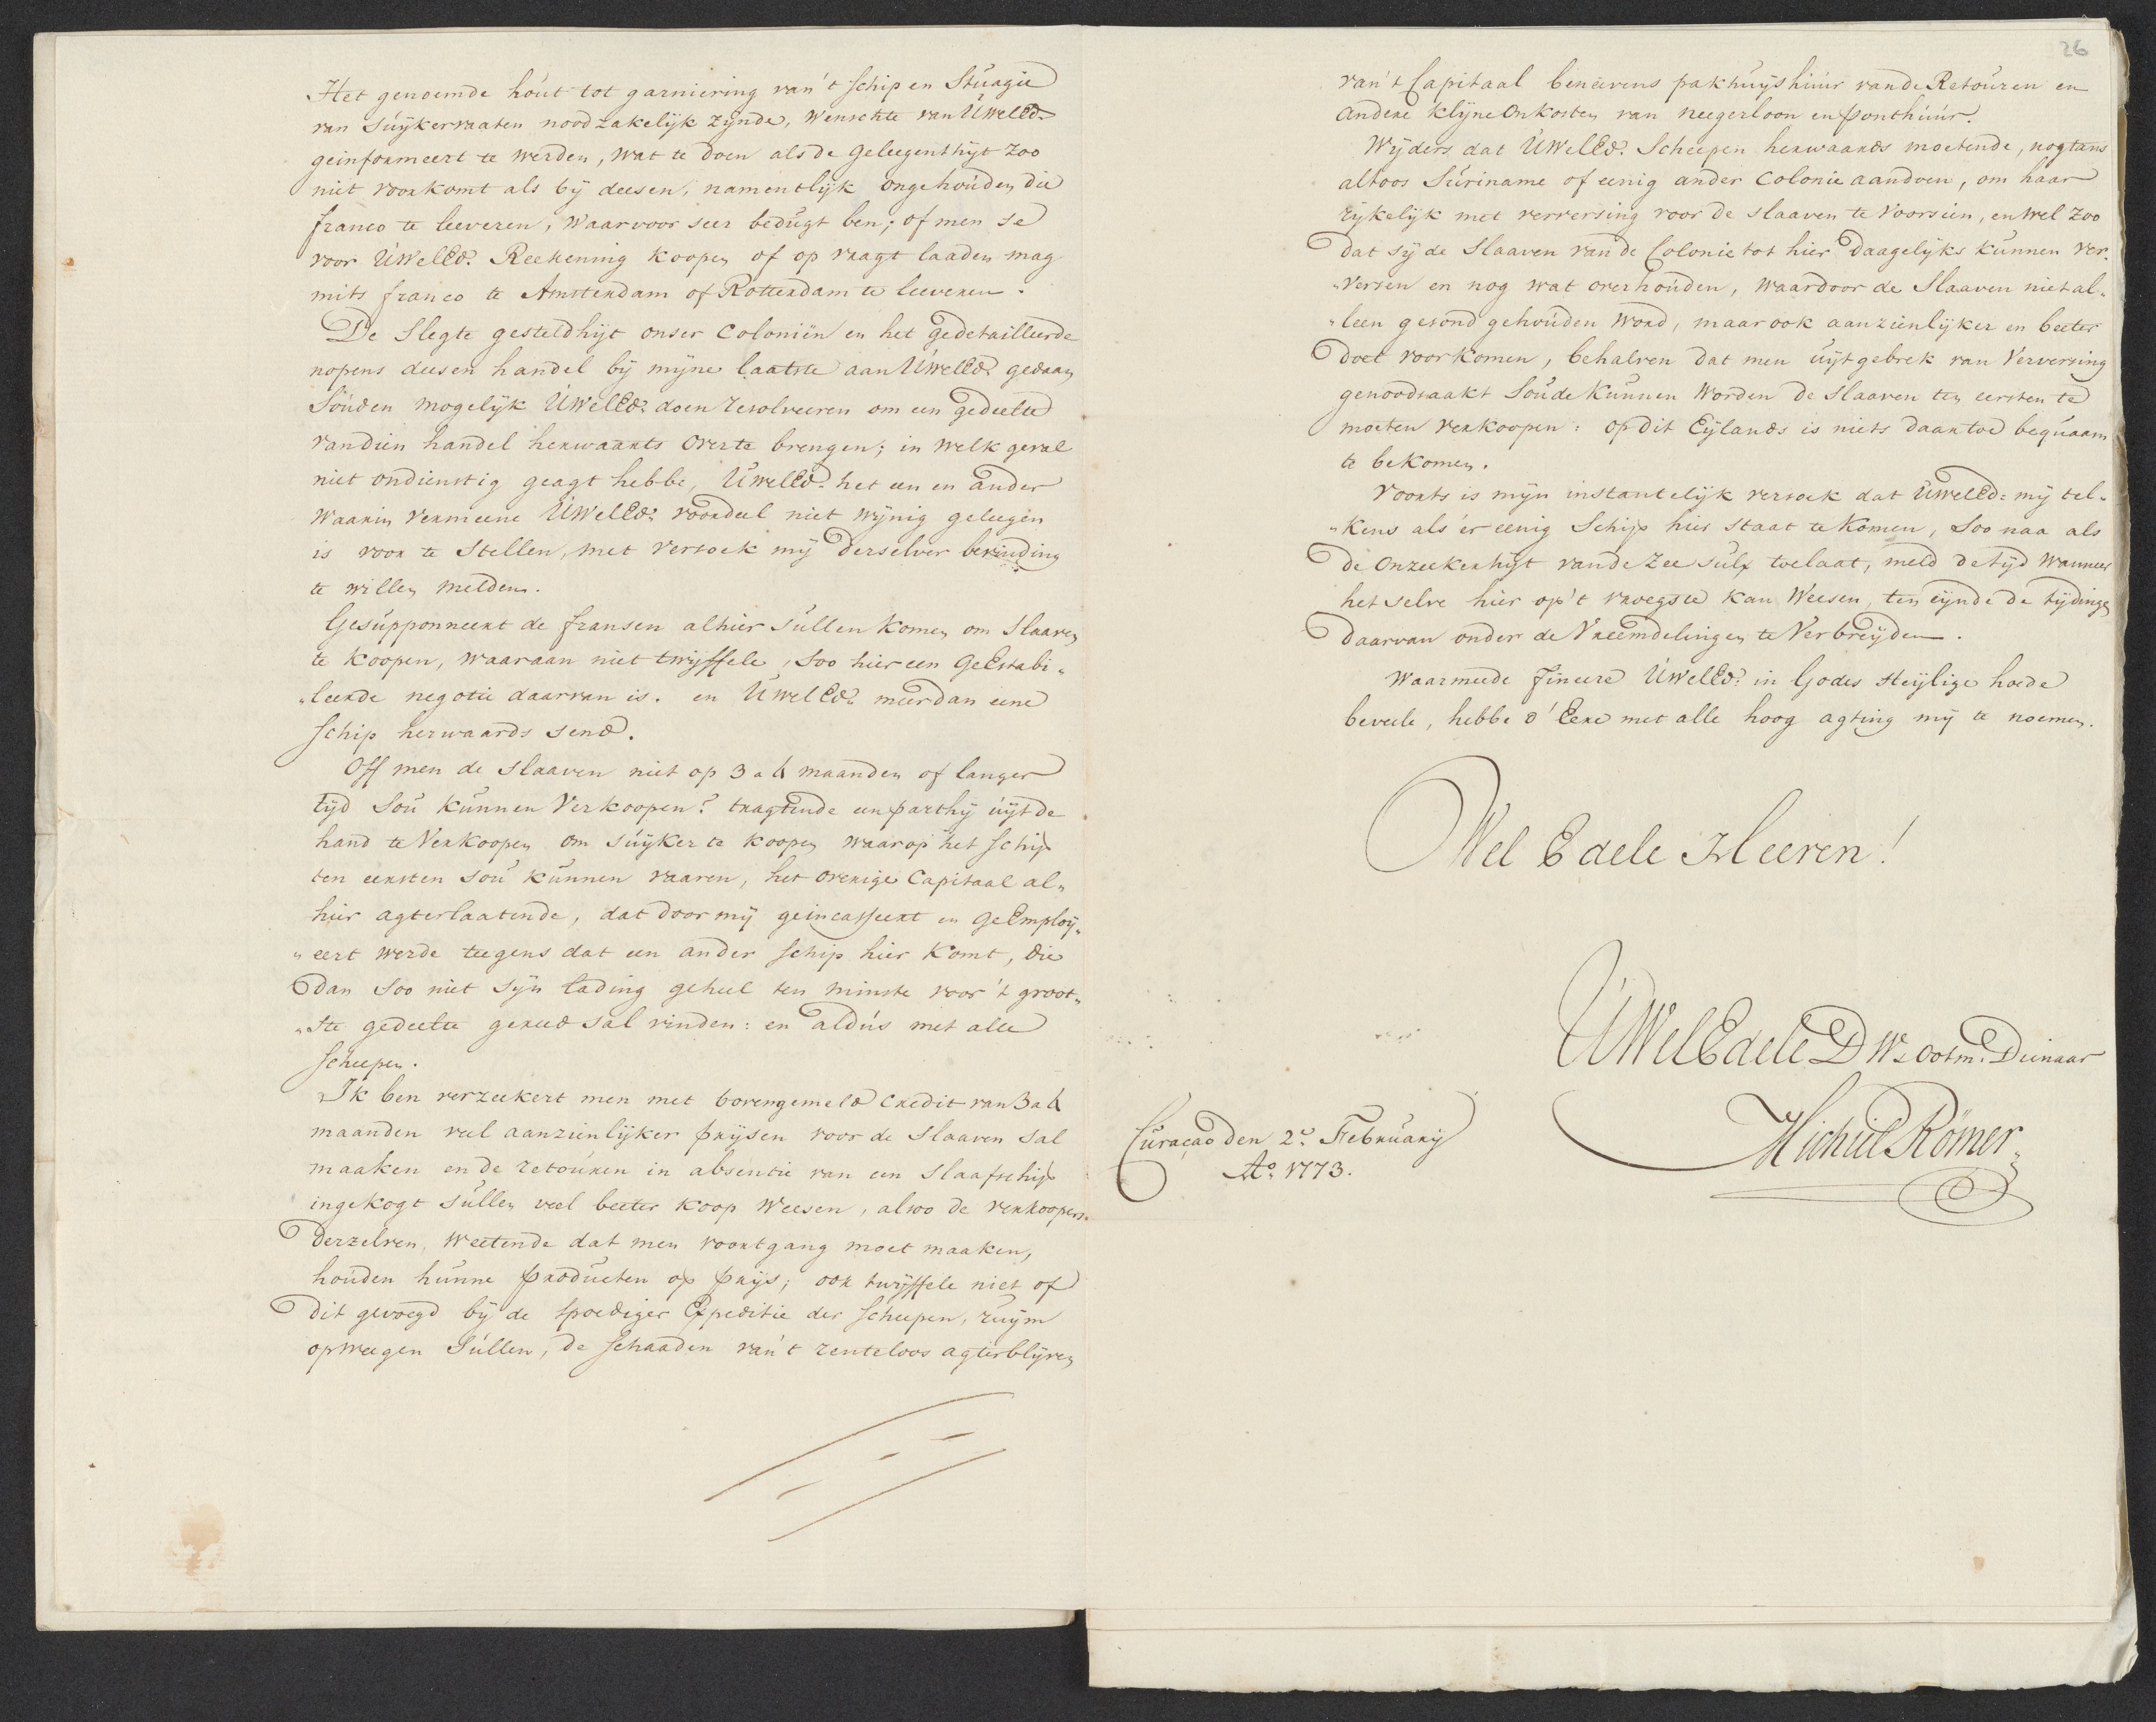 Het genoemde hout tot garniering van 't schip en Stuagie
van Suykervaaten noodzakelijk zijnde, wenschte van UWelEd.
geinformeert te werden, wat te doen als de geleegenthijt zoo
niet voorkomt als bij deesen, namentlijk ongehouden die
franco te leeveren, waarvoor seer bedugt ben; of men se
voor UWelEd. Reekening koopen of op vragt laaden mag
mits franco te Amsterdam of Rotterdam te leeveren.
De Slegte gesteldhijt onser Coloniën en het gedetailleerde
nopens deesen handel bij mijne laatste aan UWelEd. gedaan
Souden mogelijk UWelEd. doen resolveeren om een gedeelte
van dien handel herwaarts over te brengen; in welk geval
niet ondienstig geagt hebbe, UWelEd. het een en ander
waarin vermeene UWelEd. voordeel niet wijnig geleegen
is voor te Stellen, met versoek mij derselver bevinding
te willen melden.
Gesupponneert de fransen alhier sullen komen om Slaaven
te koopen, waaraan niet twijffele, soo hier een GeEstabi„
„leerde negotie daarvan is. en UWelEd. meer dan eene
schip herwaards send.
Off men de slaaven niet op 3 a 4 maanden of langer
tijd Sou kunnen Verkoopen? tragtende een parthij uijt de
hand te Verkoopen om suijker te koopen waarop het schip
ten eersten sou kunnen vaaren, het overige Capitaal al„
hier agterlaatende, dat door mij geincasseert en geEmploij„
„eert werde teegens dat een ander schip hier komt, die
dan soo niet sijn lading geheel ten minste voor 't groot„
„ste gedeelte gereed sal vinden: en aldus met alle
scheepen.
Ik ben verzeekert men met bovengemeld credit van 3 a 4
maanden veel aanzienlijker prijsen voor de slaaven sal
maaken en de retouren in absentie van een slaafschip
ingekogt sullen veel beeter koop weesen, alsoo de verkoopers
derzelven, weetende dat men voortgang moet maaken,
houden hunne producten op prijs; ook twijffele niet of
dit gevoegd bij de spoediger Expeditie der scheepen, ruijm
opweegen sullen, de schaaden van 't renteloos agterblijven
26
van 't Capitaal beneevens pakhuijshuur van de Retouren en
andere klijne onkosten van neegerloon en ponthuur.
Wijders dat UWelEd. Scheepen herwaards moetende, nogtans
altoos Suriname of eenig ander Colonie aandoen, om haar
rijkelijk met verversing voor de slaaven te voorsien, en wel zoo
dat sij de Slaaven van de Colonie tot hier daagelijks kunnen ver„
„versen en nog wat overhouden, waardoor de Slaaven niet al„
„leen gesond gehouden word, maar ook aanzienlijker en beeter
doet voorkomen, behalven dat men uijt gebrek van Verversing
genoodsaakt soude kunnen worden de slaaven ten eersten te
moeten verkoopen: op dit Eijlands is niets daartoe bequaam
te bekomen.
Voorts is mijn instantelijk versoek dat UWelEd. mij tel„
„kens als 'er eenig Schip hier staat te komen, soo naa als
de onzeekerhijt van de Zee sulx toelaat, meld de tijd wanneer
het selve hier op 't vroegste kan weesen, ten eijnde de tijdinge
daarvan onder de Vreemdelingen te Verbreijden.
Waarmeede fineere UWelEd. in Godes Heijlige hoede
beveele, hebbe d'Eere met alle hoog agting mij te noemen.
Wel Edele Heeren!
UWelEdele DW. ootm. Dienaar
Michiel Römer
Curaçao den 2e. February
Ao. 1773.